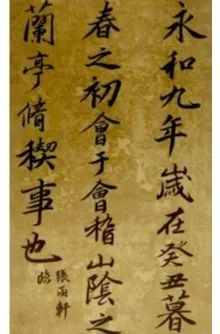 永和九年歲在癸丑暮
春之初會于會稽山陰之
蘭亭脩稧事也
張雨軒
臨